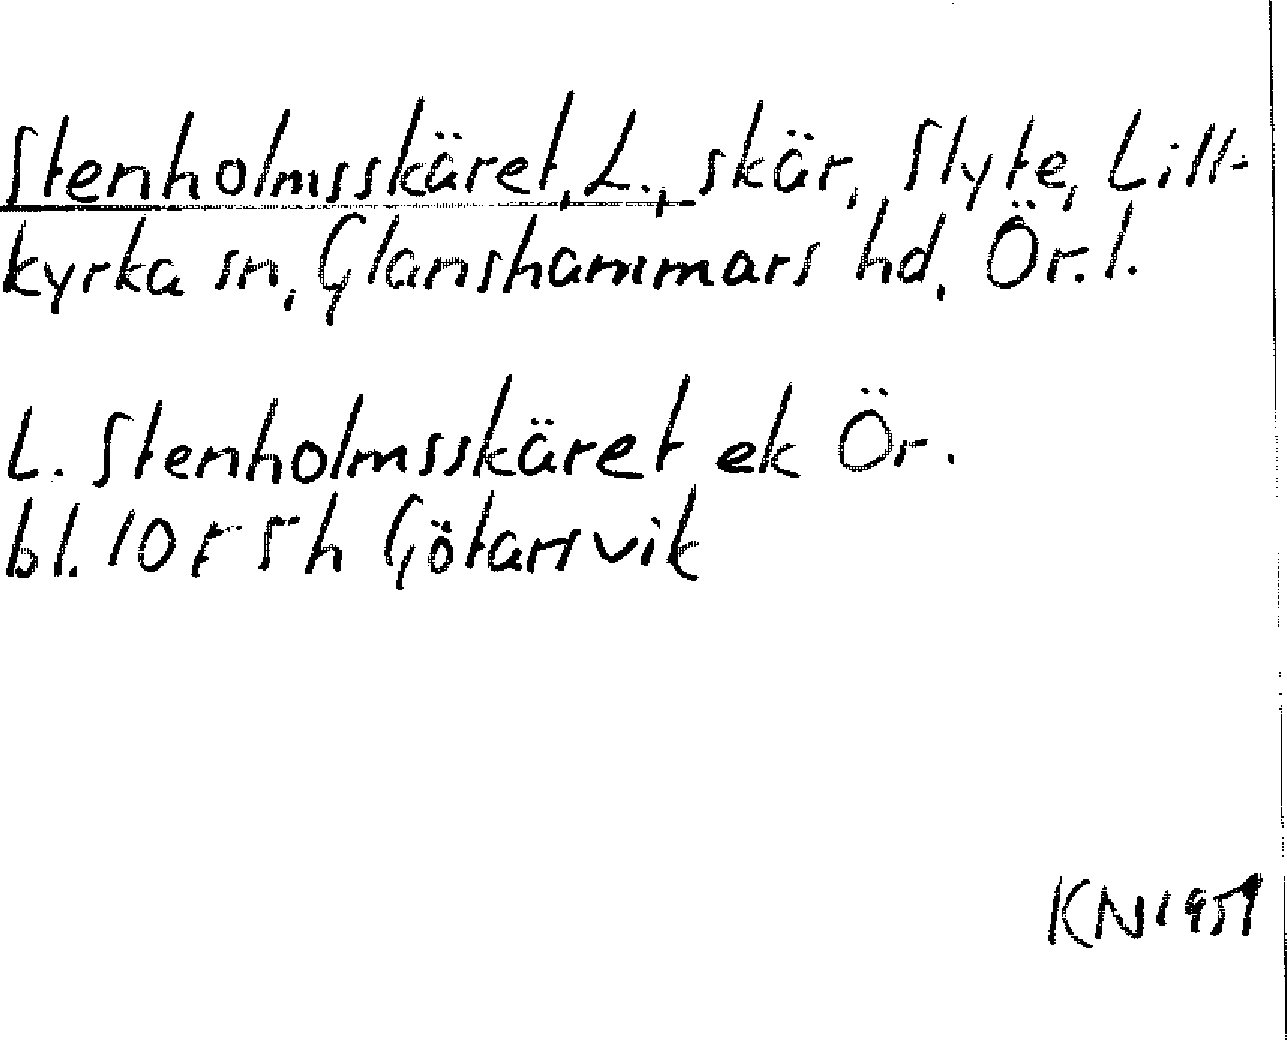 Stenholmsskäret, L., skär, Slyte, Lill-
kyrka sn, Glanshammars hd, Ör. l.
L. Stenholmsskäret ek Ör.
bl. 10 F 5 h Götarsvik
KN